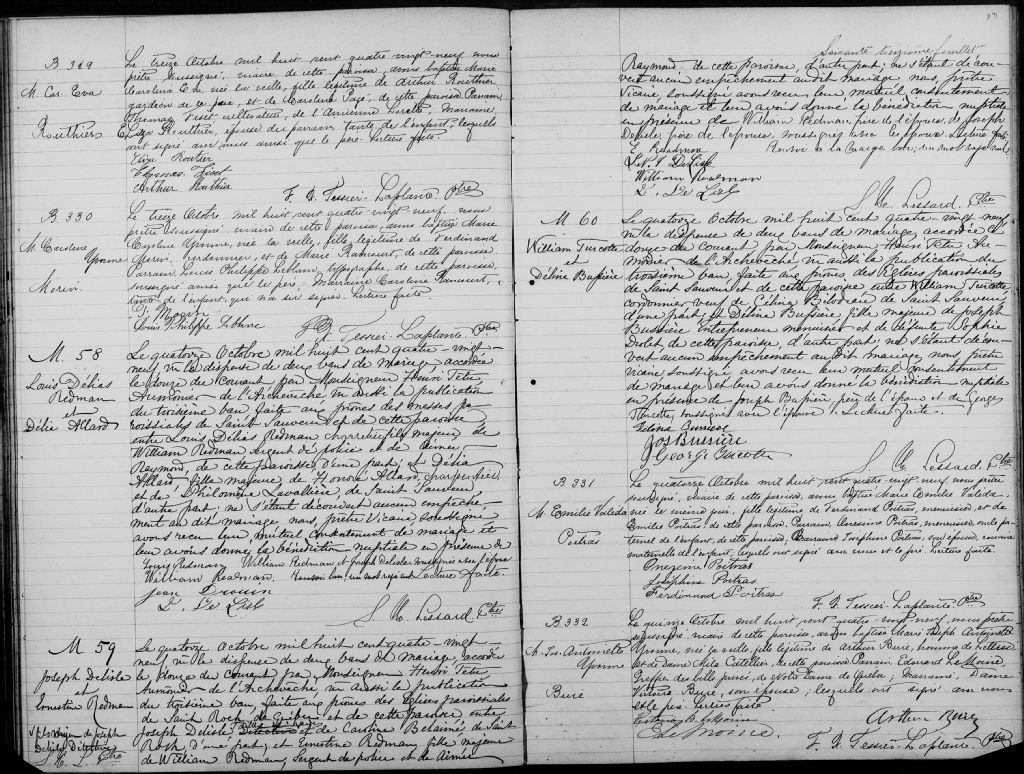 B 329
M. Car. Eva
Routhier
Le treize Octobre mil huit cent quatre-vingt-neuf nous
prêtre soussigné, vicaire de cette paroisse, avons baptisé Marie
Carolina Eva née la veille, fille légitime de Arthur Routhier
et de Caroline Pagé, de cette paroisse Parrain
Thomas cultivateur, de l'Ancienne Lorette, Marraine
Routhier, épouse du parrain, tante de l'enfant, lesquels
ont signé avec nous ainsi que le père. Lecture faite.
Eliza Routier
Arthur Routhier
F. G. Tessier-Laplante Ptre
B 330
M. Caroline
Yvonne
Morin
Le treize Octobre mil huit cent quatre-vingt-neuf, nous
prêtre soussigné, vicaire de cette paroisse, avons baptisé Marie
Caroline Yvonne, née la veille, fille légitime de Ferdinand
Morin, cordonnier, et de Marie Rancourt, de cette paroisse.
Parrain Louis Philippe Leblanc, typographe, de cette paroisse,
soussigné ainsi que le père. Marraine Caroline Rancourt,
tante de l'enfant, qui n'a su signer. Lecture faite
F. Morin
Louis Philippe Leblanc
F. G. Tessier-Laplante, Ptre
M. 58
Louis Délias
Redman
et
Délie Allard
Le quatorze Octobre mil huit cent quatre-vingt-
neuf vu la dispense de deux bans de mariage, accordée
le douze du courant par Monseigneur Henri Têtu
Aumônier de l'Archevêché vu aussi la publication
du troisième ban, faite aux prônes des messes pa-
roissiales de Saint Sauveur et de cette paroisse
entre Louis Délias Redman charretier, fils majeur de
William Redman Sergent de police et de Aimée
Raymond, de cette paroisse d'une part; et Délia
Allard, fille majeure de Honoré Allard, charpentier,
et de Philomène Lavallière de Saint Sauveur,
d'autre part; ne s'étant découvert aucun empêche-
ment au dit mariage, nous, prêtre Vicaire soussigné
avons reçu leur mutuel consentement de mariage et
leur avons donné la bénédiction nuptiale en présence de
Louis Redman William Redman et Joseph Delisle, soussignés avec l'épouse
William Readman. Lecture faite.
Jean Drouin
D. De Lisle
S. C. Lessard Ptre
M 59
Joseph Delisle
et
Ernestine Redman
Le quatorze Octobre mil huit cent quatre-vingt-
neuf vu la dispense de deux bans de mariage, accordée
le douze du courant par Monseigneur Henri Têtu
Aumônier de l'Archevêché, vu aussi la publication
du troisième ban, faite aux prônes des Eglises paroissiales
de Saint Roch de Québec et de cette paroisse entre
Joseph Delisle et de Caroline de Saint
Roch d'une part; et Ernestine Redman, fille majeure
de William Redman, Sergent de police et de Aimée
Soixante treizième feuillet
73
Raymond, de cette paroisse, d'autre part; ne s'étant décou-
vert aucun empêchement au dit mariage nous, prêtre
Vicaire, soussigné avons reçu leur mutuel consentement
de mariage et leur avons donné la bénédiction nuptiale
en présence de William Redman, père de l'épouse, de Joseph
Delisle, père de l'époux, soussignés avec les époux. Lecture faite
E. Readman Renvoi à la marge bon, un mot rayé nul.
William Readman
D. De Lisle
S. C. Lessard, Ptre
M 60
William Turcotte
et
Délina Bussière
Le quatorze Octobre mil huit cent quatre-vingt-neuf
vu la dispense de deux bans de mariage, accordée le
douze du courant par Monseigneur Henri Têtu Au-
mônier de l'Archevêché vu aussi la publication du
troisième ban faite aux prônes des Eglises paroissiales
de Saint Sauveur et de cette paroisse entre William Turcotte
cordonnier veuf de Célina de Saint Sauveur,
d'une part; et Délina Bussière fille majeure de Joseph
Bussière Entrepreneur menuisier et de défunte Sophie
Drolet, de cette paroisse, d'autre part; ne s'étant décou-
vert aucun empêchement au dit mariage, nous, prêtre
Vicaire soussigné, avons reçu leur mutuel consentement
de mariage et leur avons donné la bénédiction nuptiale
en présence de Joseph Bussière, père de l'épouse et de George
Turcotte, soussignés avec l'épouse. Lecture faite.
Jos Bussière
George Turcotte
S. C. Lessard, Ptre
B 331
M Emilie Valéda
Poitras
Le quatorze Octobre mil huit cent quatre-vingt neuf nous prêtre
soussigné, vicaire de cette paroisse, avons baptisé Marie Emilie Valéda,
née ce même jour, fille légitime de Ferdinand Poitras, menuisier, et de
Emilie Poitras, de cette paroisse. Parrain, Onésime Poitras, menuisier, oncle pa-
ternel de l'enfant, de cette paroisse, Marraine, Joséphine Poitras, son épouse, cousine
maternelle de l'enfant, lesquels ont signé avec nous et le père. Lecture faite.
Onezime Poitras
Joséphine Poitras
Ferdinand Poitras
F. G. Tessier-Laplante, Ptre
B 332
M. Jos. Antoinette
Yvonne
Buré
Le quinze Octobre mil huit cent quatre-vingt-neuf, nous prêtre
soussigné, vicaire de cette paroisse, avons baptisé Marie Joseph Antoinette
Yvonne, née la veille, fille légitime de Arthur Buré, homme de Lettres
et de Dame de cette paroisse Parrain, Edouard LeMoine,
Greffier des bills privés, de Notre Dame de Québec; Marraine, Dame
Victoria Buré, son épouse; lesquels ont signé avec nous
et le père. Lecture faite.
Le Moine.
Arthur Buré
F. G. Tessier-Laplante. Ptre